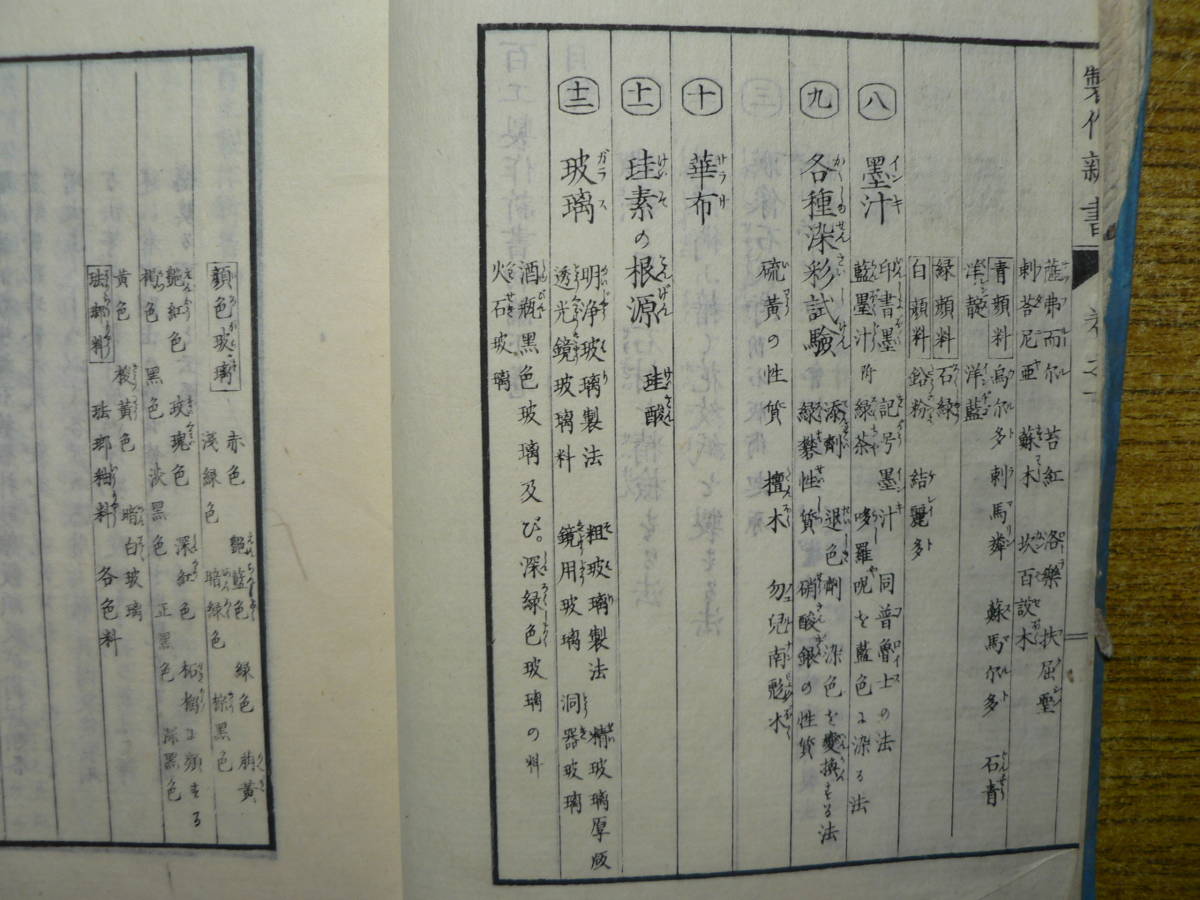 製作新書
苔紅 洛樂 扶屈塈
蘇木
青顔料 烏尓多刺馬 蘇馬尓多 石青
洋靛 洋藍
緑顔料 石緑
白顔料 鉛粉 結麗多
八 墨汁
印書墨 記号墨汁 同普魯士の法
藍墨汁 緑茶 哆羅呢を藍色に染る法
九 各種染彩試驗
添劑 退色劑 染色を變換する法
緑礬性質 硝酸銀の性質
硫黄の性質 檀木 勿兒南彪木
十 華布
十一 珪素の根源 珪酸
十二 玻璃
明浄玻璃製法 粗玻璃製法 精玻璃厚版
透光鏡玻璃料 鏡用玻璃 洞器玻璃
酒瓶黒色玻璃及び。深緑色玻璃の料
火石玻璃
顔色玻璃
赤色 艶藍色 緑色
淺緑色 暗緑色 棕黒色
艶紅色 玫瑰色 深紅色
褐色 黒色 淡黒色 正黒色 深黒色
黄色 棱黄色 暗白玻璃
珐瑯料 珐瑯釉料 各色料